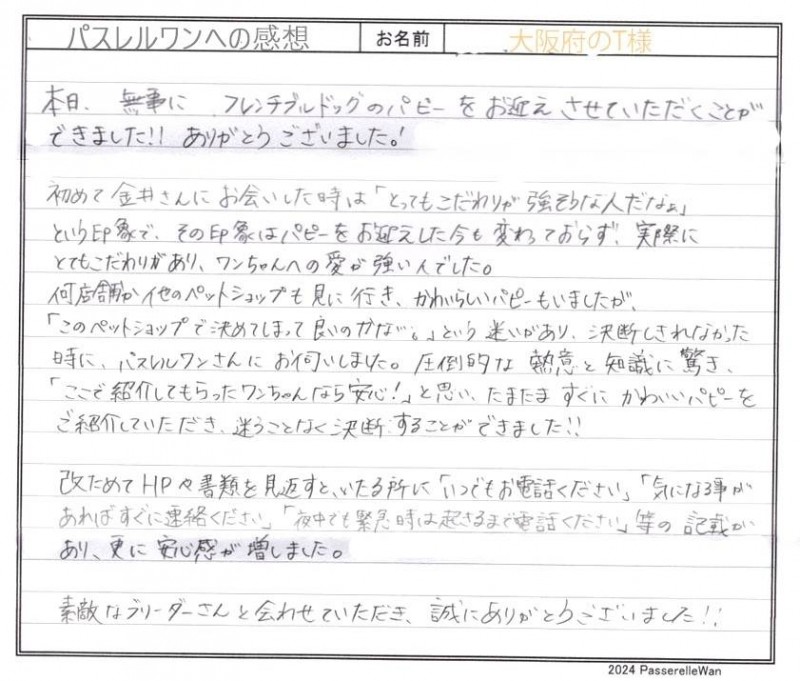 パスレルワンへの感想 お名前 大阪府のT様
本日、無事に フレンチブルドッグのパピーをお迎えさせていただくことが
できました!! ありがとうございました!
初めて金井さんにお会いした時は「とってもこだわりが強そうな人だなぁ」
という印象で、その印象はパピーをお迎えした今も変わっておらず、実際に
とてもこだわりがあり、ワンちゃんへの愛が強い人でした。
何店舗か他のペットショップも見に行き、かわいらしいパピーもいましたが、
「このペットショップで決めてしまって良いのかな…。」という迷いがあり、決断しきれなかった
時に、パスレルワンさんにお伺いしました。圧倒的な熱意と知識に驚き、
「ここで紹介してもらったワンちゃんなら安心!」と思い、たまたますぐにかわいいパピーを
ご紹介していただき、迷うことなく決断することができました!!
改ためてHPや書類を見返すと、いたる所に「いつでもお電話ください」「気になる事が
あればすぐに連絡ください」「夜中でも緊急時は起きるまで電話ください」等の記載が
あり、更に安心感が増しました。
素敵なブリーダーさんと会わせていただき、誠にありがとうございました!!
2024 PasserelleWan